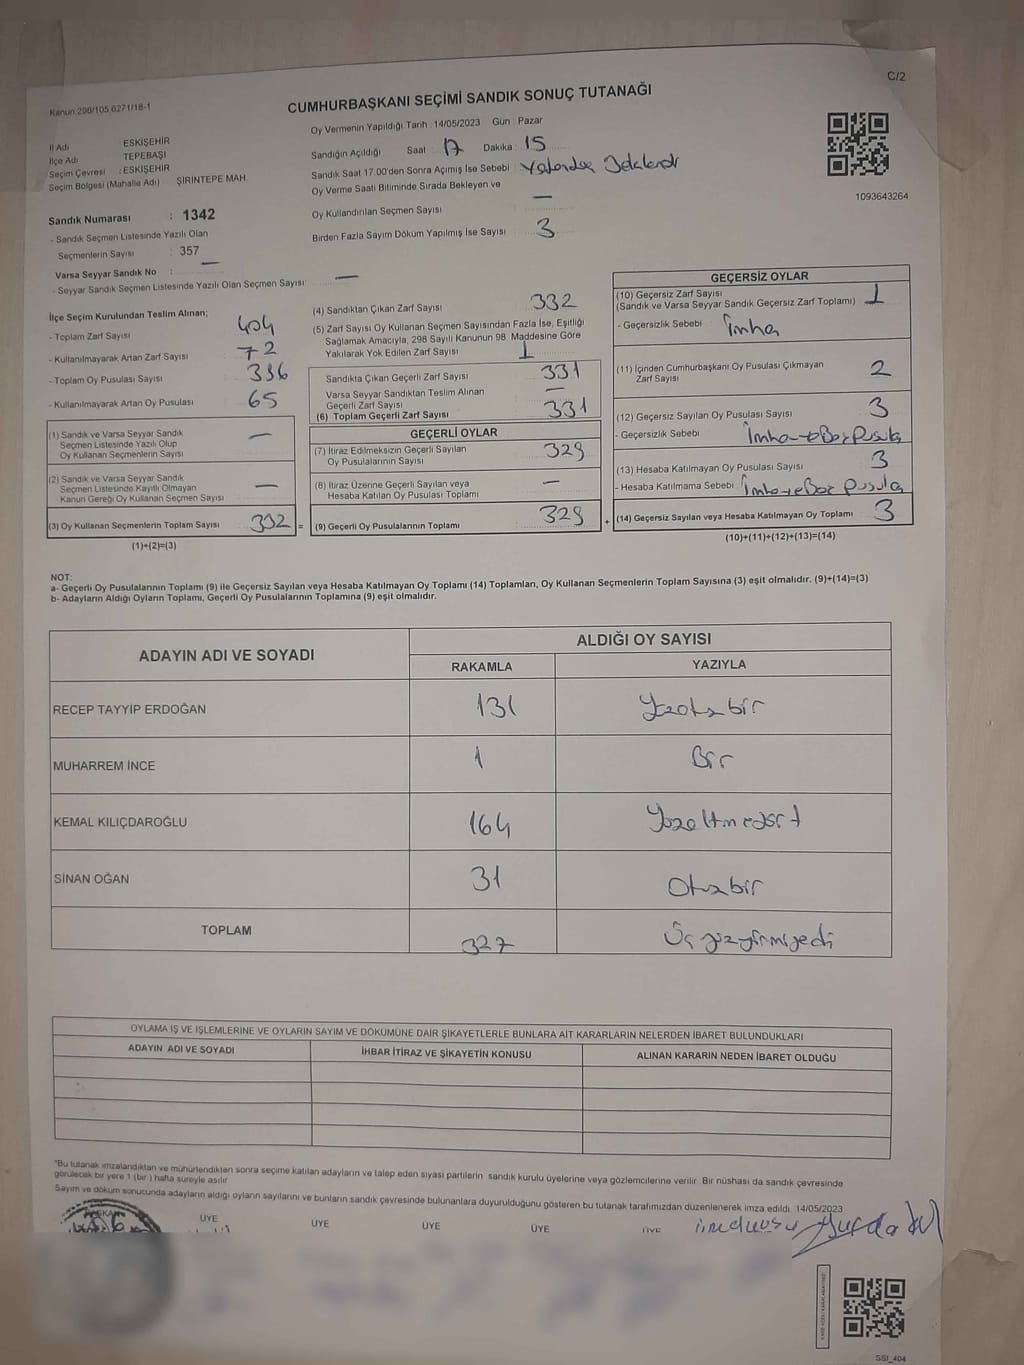 C/2
Kanun.298/105.6271/18-1
CUMHURBAŞKANI SEÇİMİ SANDIK SONUÇ TUTANAĞI
Oy Vermenin Yapıldığı Tarih : 14/05/2023 Gün : Pazar
İl Adı ESKİŞEHİR
İlçe Adı TEPEBAŞI
Seçim Çevresi : ESKİŞEHİR
Seçim Bölgesi (Mahalle Adı) ŞİRİNTEPE MAH.
Sandığın Açıldığı Saat : 17 Dakika : 15
Sandık Saat 17.00'den Sonra Açımış İse Sebebi
Oy Verme Saati Bitiminde Sırada Bekleyen ve
Oy Kullandırılan Seçmen Sayısı —
Birden Fazla Sayım Döküm Yapılmış İse Sayısı 3
1093643264
Sandık Numarası : 1342
- Sandık Seçmen Listesinde Yazılı Olan
Seçmenlerin Sayısı : 357
Varsa Seyyar Sandık No : —
- Seyyar Sandık Seçmen Listesinde Yazılı Olan Seçmen Sayısı: —
İlçe Seçim Kurulundan Teslim Alınan;
- Toplam Zarf Sayısı 404
- Kullanılmayarak Artan Zarf Sayısı 72
- Toplam Oy Pusulası Sayısı
- Kullanılmayarak Artan Oy Pusulası 65
(1) Sandık ve Varsa Seyyar Sandık
Seçmen Listesinde Yazılı Olup
Oy Kullanan Seçmenlerin Sayısı —
(2) Sandık ve Varsa Seyyar Sandık
Seçmen Listesinde Kayıtlı Olmayan
Kanun Gereği Oy Kullanan Seçmen Sayısı —
(3) Oy Kullanan Seçmenlerin Toplam Sayısı 332 =
(1)+(2)=(3)
(4) Sandıktan Çıkan Zarf Sayısı 332
(5) Zarf Sayısı Oy Kullanan Seçmen Sayısından Fazla İse, Eşitliği
Sağlamak Amacıyla, 298 Sayılı Kanunun 98. Maddesine Göre
Yakılarak Yok Edilen Zarf Sayısı 1
Sandıkta Çıkan Geçerli Zarf Sayısı 331
Varsa Seyyar Sandıktan Teslim Alınan
Geçerli Zarf Sayısı —
(6) Toplam Geçerli Zarf Sayısı 331
GEÇERLİ OYLAR
(7) İtiraz Edilmeksizin Geçerli Sayılan
Oy Pusulalarının Sayısı 329
(8) İtiraz Üzerine Geçerli Sayılan veya
Hesaba Katılan Oy Pusulası Toplamı —
(9) Geçerli Oy Pusulalarının Toplamı 329 +
GEÇERSİZ OYLAR
(10) Geçersiz Zarf Sayısı
(Sandık ve Varsa Seyyar Sandık Geçersiz Zarf Toplamı) 1
- Geçersizlik Sebebi : İmha
(11) İçinden Cumhurbaşkanı Oy Pusulası Çıkmayan
Zarf Sayısı 2
(12) Geçersiz Sayılan Oy Pusulası Sayısı 3
- Geçersizlik Sebebi : İmha ve Boz Pusula
(13) Hesaba Katılmayan Oy Pusulası Sayısı 3
- Hesaba Katılmama Sebebi : İmha ve Boz Pusula
(14) Geçersiz Sayılan veya Hesaba Katılmayan Oy Toplamı 3
(10)+(11)+(12)+(13)=(14)
NOT:
a- Geçerli Oy Pusulalarının Toplamı (9) ile Geçersiz Sayılan veya Hesaba Katılmayan Oy Toplamı (14) Toplamları, Oy Kullanan Seçmenlerin Toplam Sayısına (3) eşit olmalıdır. (9)+(14)=(3)
b- Adayların Aldığı Oyların Toplamı, Geçerli Oy Pusulalarının Toplamına (9) eşit olmalıdır.
ADAYIN ADI VE SOYADI ALDIĞI OY SAYISI
RAKAMLA YAZIYLA
RECEP TAYYİP ERDOĞAN 131 Yüzotuzbir
MUHARREM İNCE 1 Bir
KEMAL KILIÇDAROĞLU 164 Yüzaltmışdört
SİNAN OĞAN 31 Otuzbir
TOPLAM 327 Üçyüzyirmiyedi
OYLAMA İŞ VE İŞLEMLERİNE VE OYLARIN SAYIM VE DÖKÜMÜNE DAİR ŞİKAYETLERLE BUNLARA AİT KARARLARIN NELERDEN İBARET BULUNDUKLARI
ADAYIN ADI VE SOYADI İHBAR İTİRAZ VE ŞİKAYETİN KONUSU ALINAN KARARIN NEDEN İBARET OLDUĞU
"Bu tutanak imzalandıktan ve mühürlendikten sonra seçime katılan adayların ve talep eden siyasi partilerin sandık kurulu üyelerine veya gözlemcilerine verilir. Bir nüshası da sandık çevresinde
görülecek bir yere 1 (bir) hafta süreyle asılır
Sayım ve döküm sonucunda adayların aldığı oyların sayılarını ve bunların sandık çevresinde bulunanlara duyurulduğunu gösteren bu tutanak tarafımızdan düzenlenerek imza edildi. 14/05/2023
BAŞKAN ÜYE ÜYE ÜYE ÜYE ÜYE
SSI_404